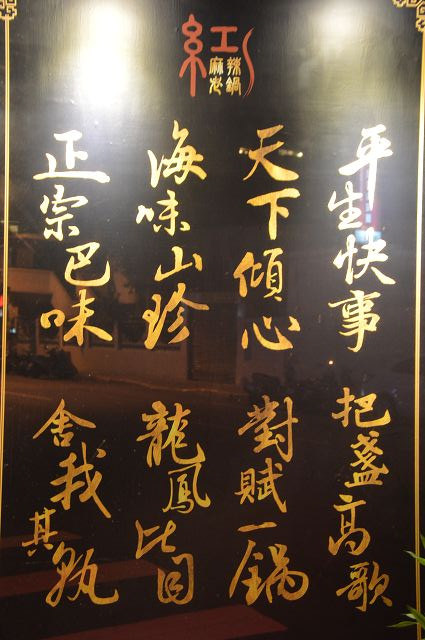 紅
麻辣火鍋
平生快事 把盞高歌
天下傾心 對賦一鍋
海味山珍 龍鳳比目
正宗巴味 舍我其孰